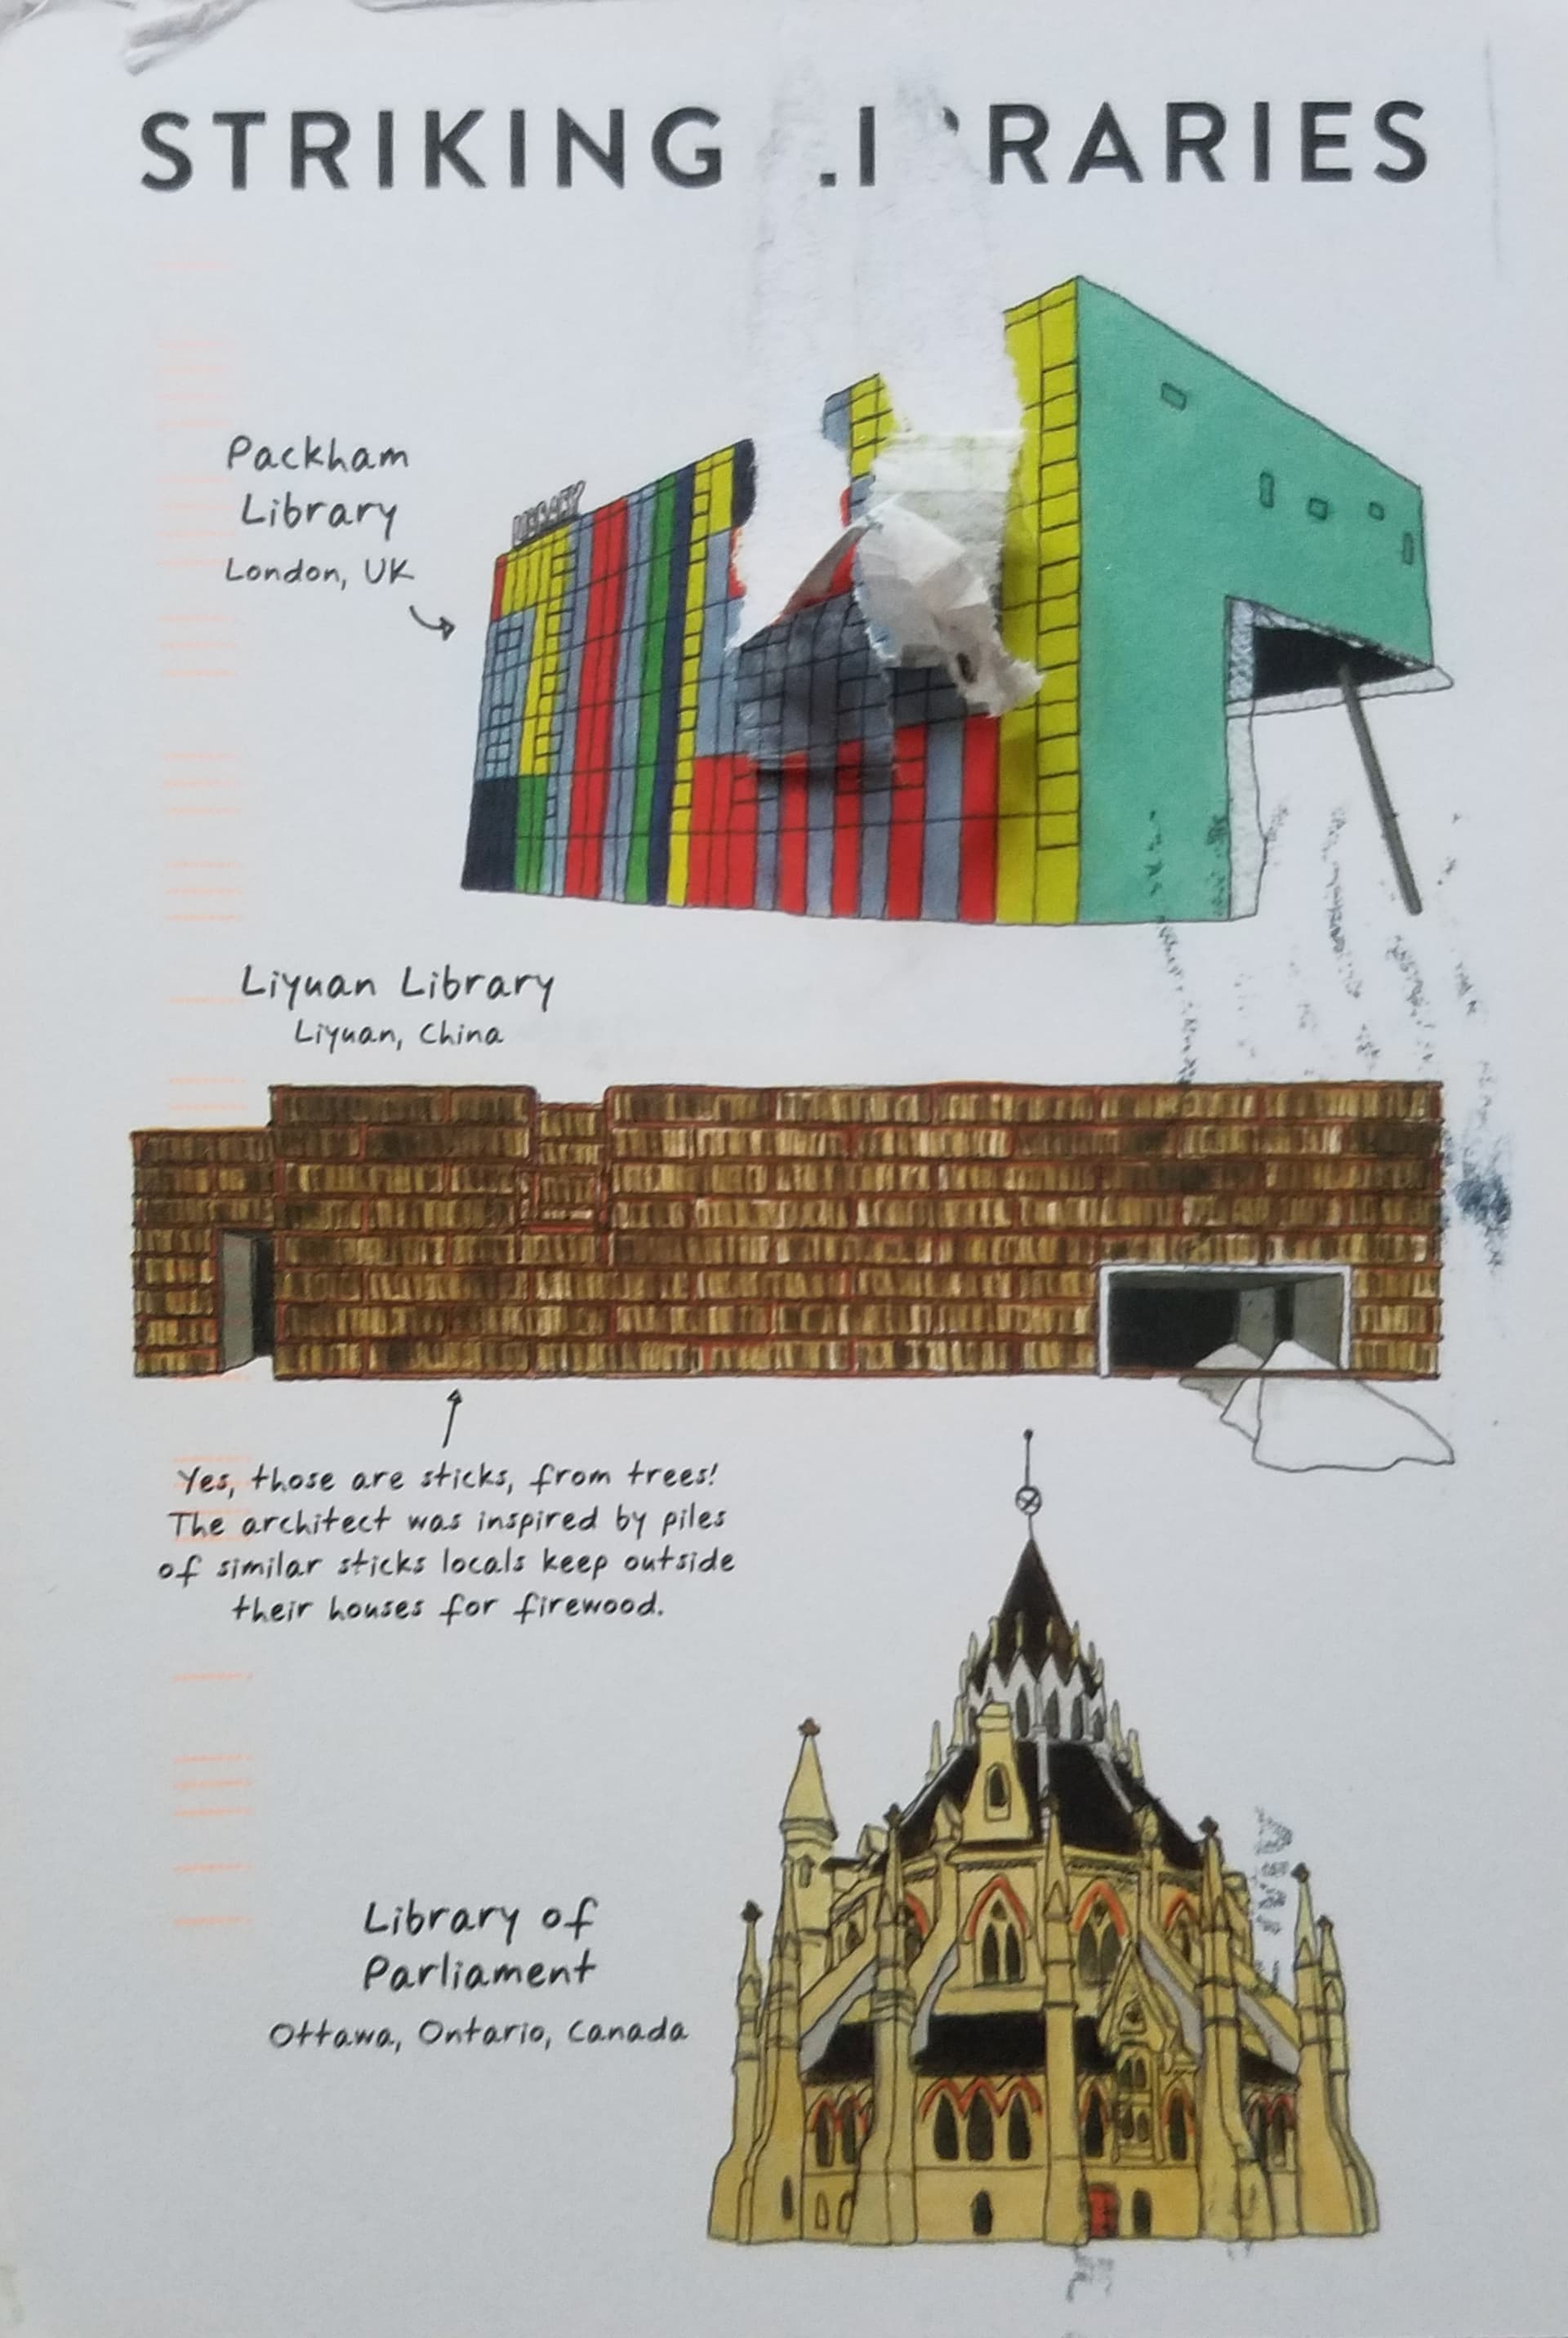 STRIKING LIBRARIES
LIBRARY
Packham
Library
London, UK
Liyuan Library
Liyuan, China
Yes, those are sticks, from trees!
The architect was inspired by piles
of similar sticks locals keep outside
their houses for firewood.
Library of
Parliament
Ottawa, Ontario, Canada